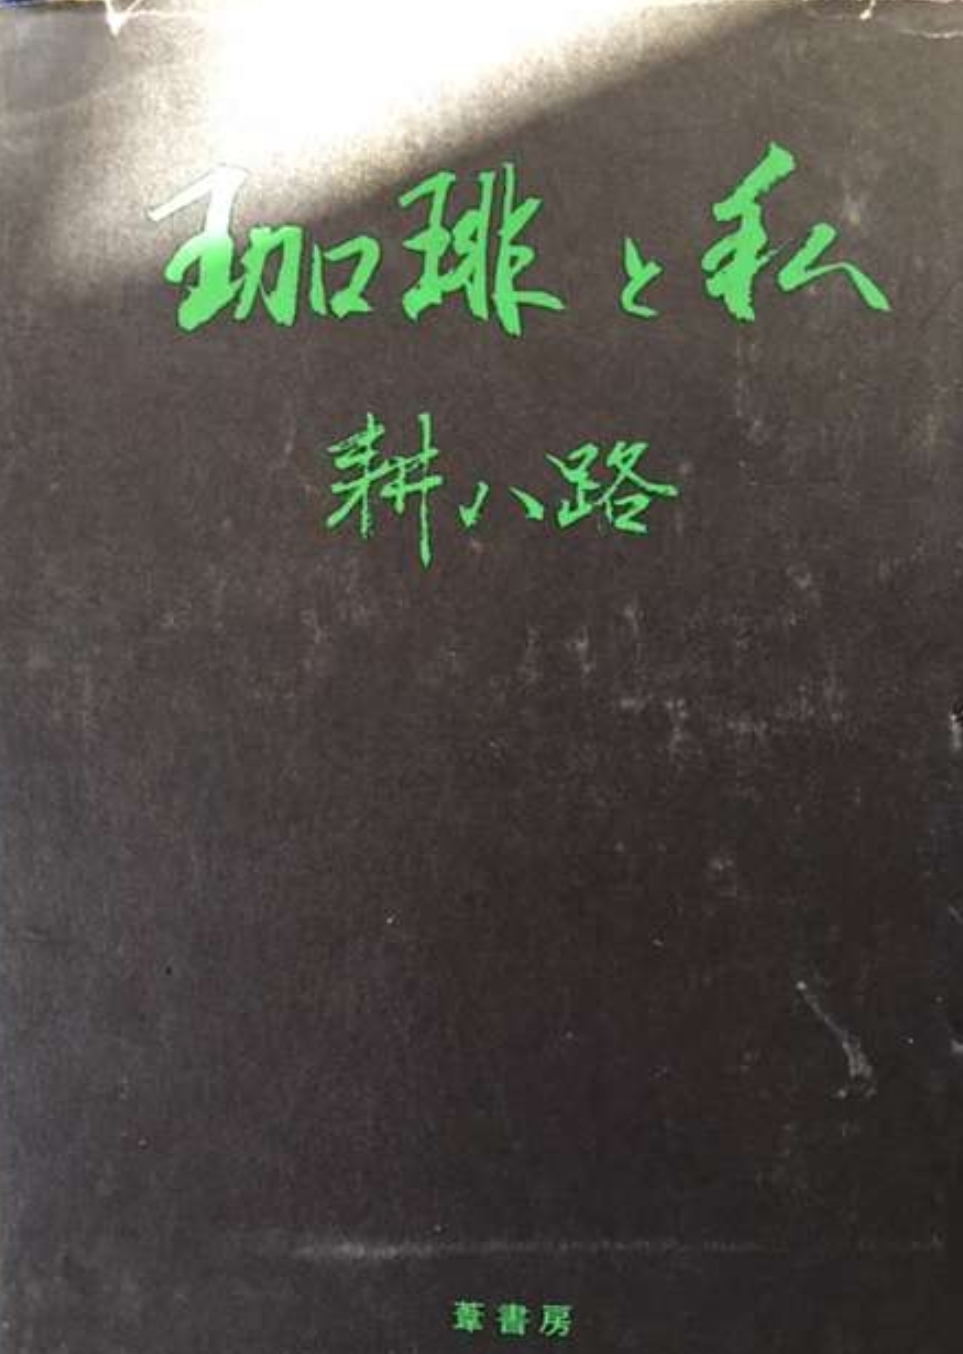 珈琲と私
耕八路
葦書房